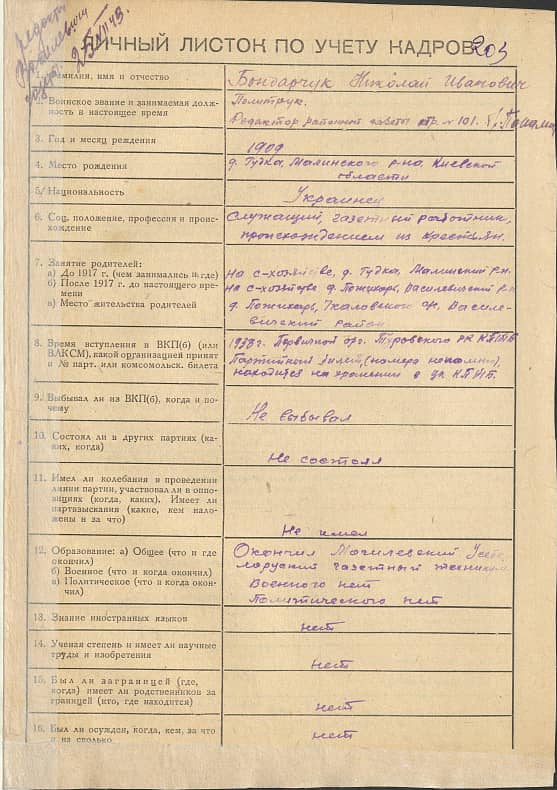 ЛИЧНЫЙ ЛИСТОК ПО УЧЕТУ КАДРОВ 203
Фамилия, имя и отчество
Бондарчук Николай Иванович
2. Воинское звание и занимаемая долж-
ность в настоящее время
Политрук.
Редактор районной газеты
3. Год и месяц рождения
1909
4. Место рождения
д. Гудка, Малинского р-на, Киевской
области
5. Национальность
Украинец
6. Соц. положение, профессия и проис-
хождение
Служащий, газетный работник,
происхождением из крестьян.
7. Занятие родителей:
а) До 1917 г. (чем занимались и где)
б) После 1917 г. до настоящего вре-
мени
в) Место жительства родителей
на с-хозяйстве, д. Гудка, Малинский р-н.
на с-хозяйстве д. Пожихарь, Василевичский р-н
д. Пожихарь, Ткаловского с/с, Василе-
вичский район
8. Время вступления в ВКП(б) (или
ВЛКСМ), какой организацией принят
и № парт. или комсомольск. билета
1938 г. Первичной орг. Туровского РК КП(б)Б
Партийный билет, (номера непомню),
находится на хранении в ЦК КП(б)Б.
9. Выбывал ли из ВКП(б), когда и по-
чему
Не выбывал
10. Состоял ли в других партиях (ка-
ких, когда)
Не состоял
11. Имел ли колебания в проведении
линии партии, участвовал ли в оппо-
зициях (когда, каких). Имеет ли
партвзыскания (какие, кем нало-
жены и за что)
Не имел
12. Образование: а) Общее (что и где
окончил)
б) Военное (что и когда окончил)
в) Политическое (что и когда окон-
чил)
Окончил Могилевский
газетный техникум
Военного нет
Политического нет
13. Знание иностранных языков
нет
14. Ученая степень и имеет ли научные
труды и изобретения
нет
15. Был ли заграницей (где,
когда) имеет ли родственников за
границей (кто, где находится)
нет
16. Был ли осужден, когда, кем, за что
и на сколько
нет